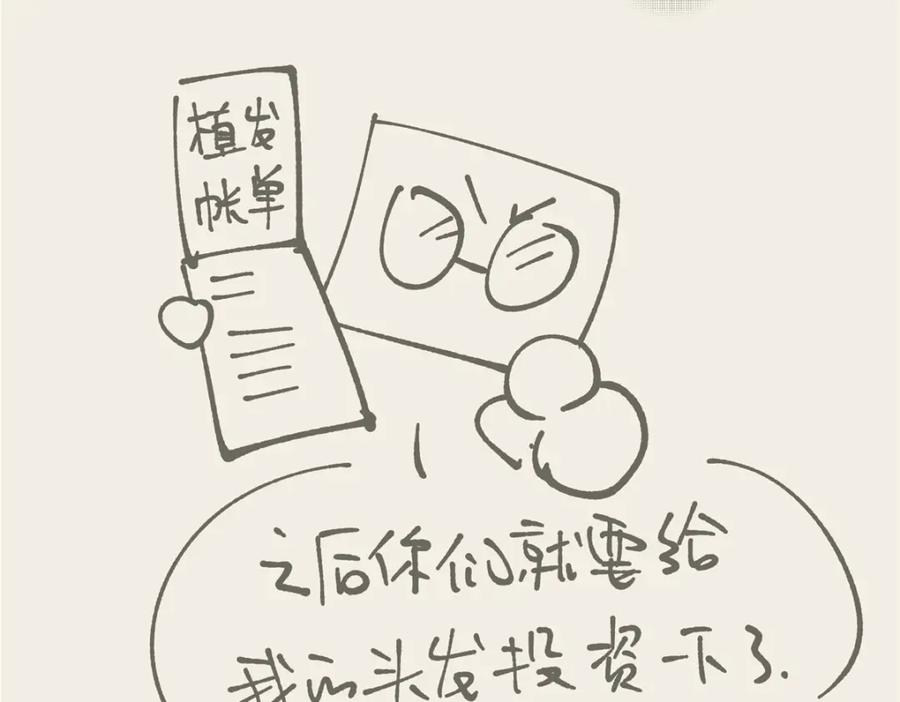 植发
帐单
之后你们就要给
我的头发投资一下了.